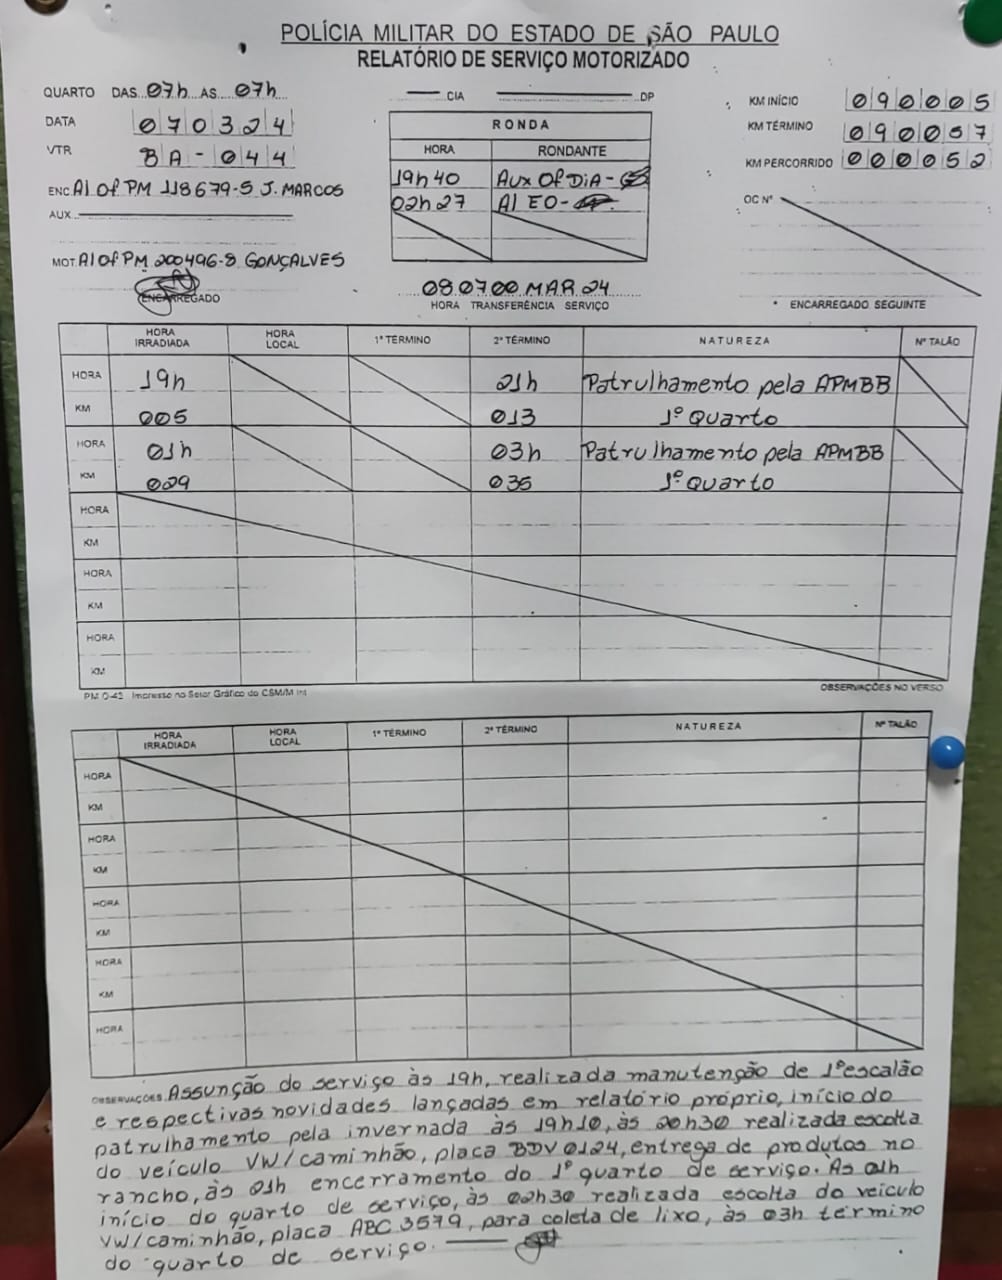 POLÍCIA MILITAR DO ESTADO DE SÃO PAULO
RELATÓRIO DE SERVIÇO MOTORIZADO
QUARTO DAS 07h AS 07h
DATA 070324
VTR BA-044
ENC Al Of PM 118679-5 J. MARCOS
AUX.
MOT. Al Of PM 200496-8 GONÇALVES
ENCARREGADO
CIA DP
RONDA
HORA RONDANTE
19h40 AUX OF DIA -
02h27 Al EO -
080700 MAR 24
HORA TRANSFERÊNCIA SERVIÇO
KM INÍCIO 090005
KM TÉRMINO 090057
KM PERCORRIDO 000052
OC Nº
* ENCARREGADO SEGUINTE
HORA IRRADIADA HORA LOCAL 1º TÉRMINO 2º TÉRMINO NATUREZA Nº TALÃO
HORA 19h 21h Patrulhamento pela APMBB
KM 005 013 1º Quarto
HORA 01h 03h Patrulhamento pela APMBB
KM 029 036 1º Quarto
HORA
KM
HORA
KM
HORA
KM
PM O-42 Impresso no Setor Gráfico do CSM/M Int
OBSERVAÇÕES NO VERSO
HORA IRRADIADA HORA LOCAL 1º TÉRMINO 2º TÉRMINO NATUREZA Nº TALÃO
HORA
KM
HORA
KM
HORA
KM
HORA
KM
HORA
OBSERVAÇÕES Assunção do serviço às 19h, realizada manutenção de 1º escalão
e respectivas novidades lançadas em relatório próprio, início do
patrulhamento pela invernada às 19h10, às 20h30 realizada escolta
do veículo VW/caminhão, placa BDV 0124, entrega de produtos no
rancho, às 21h encerramento do 1º quarto de serviço. Às 01h
início do quarto de serviço, às 02h30 realizada escolta do veículo
VW/caminhão, placa ABC 3579, para coleta de lixo, às 03h término
do quarto de serviço.